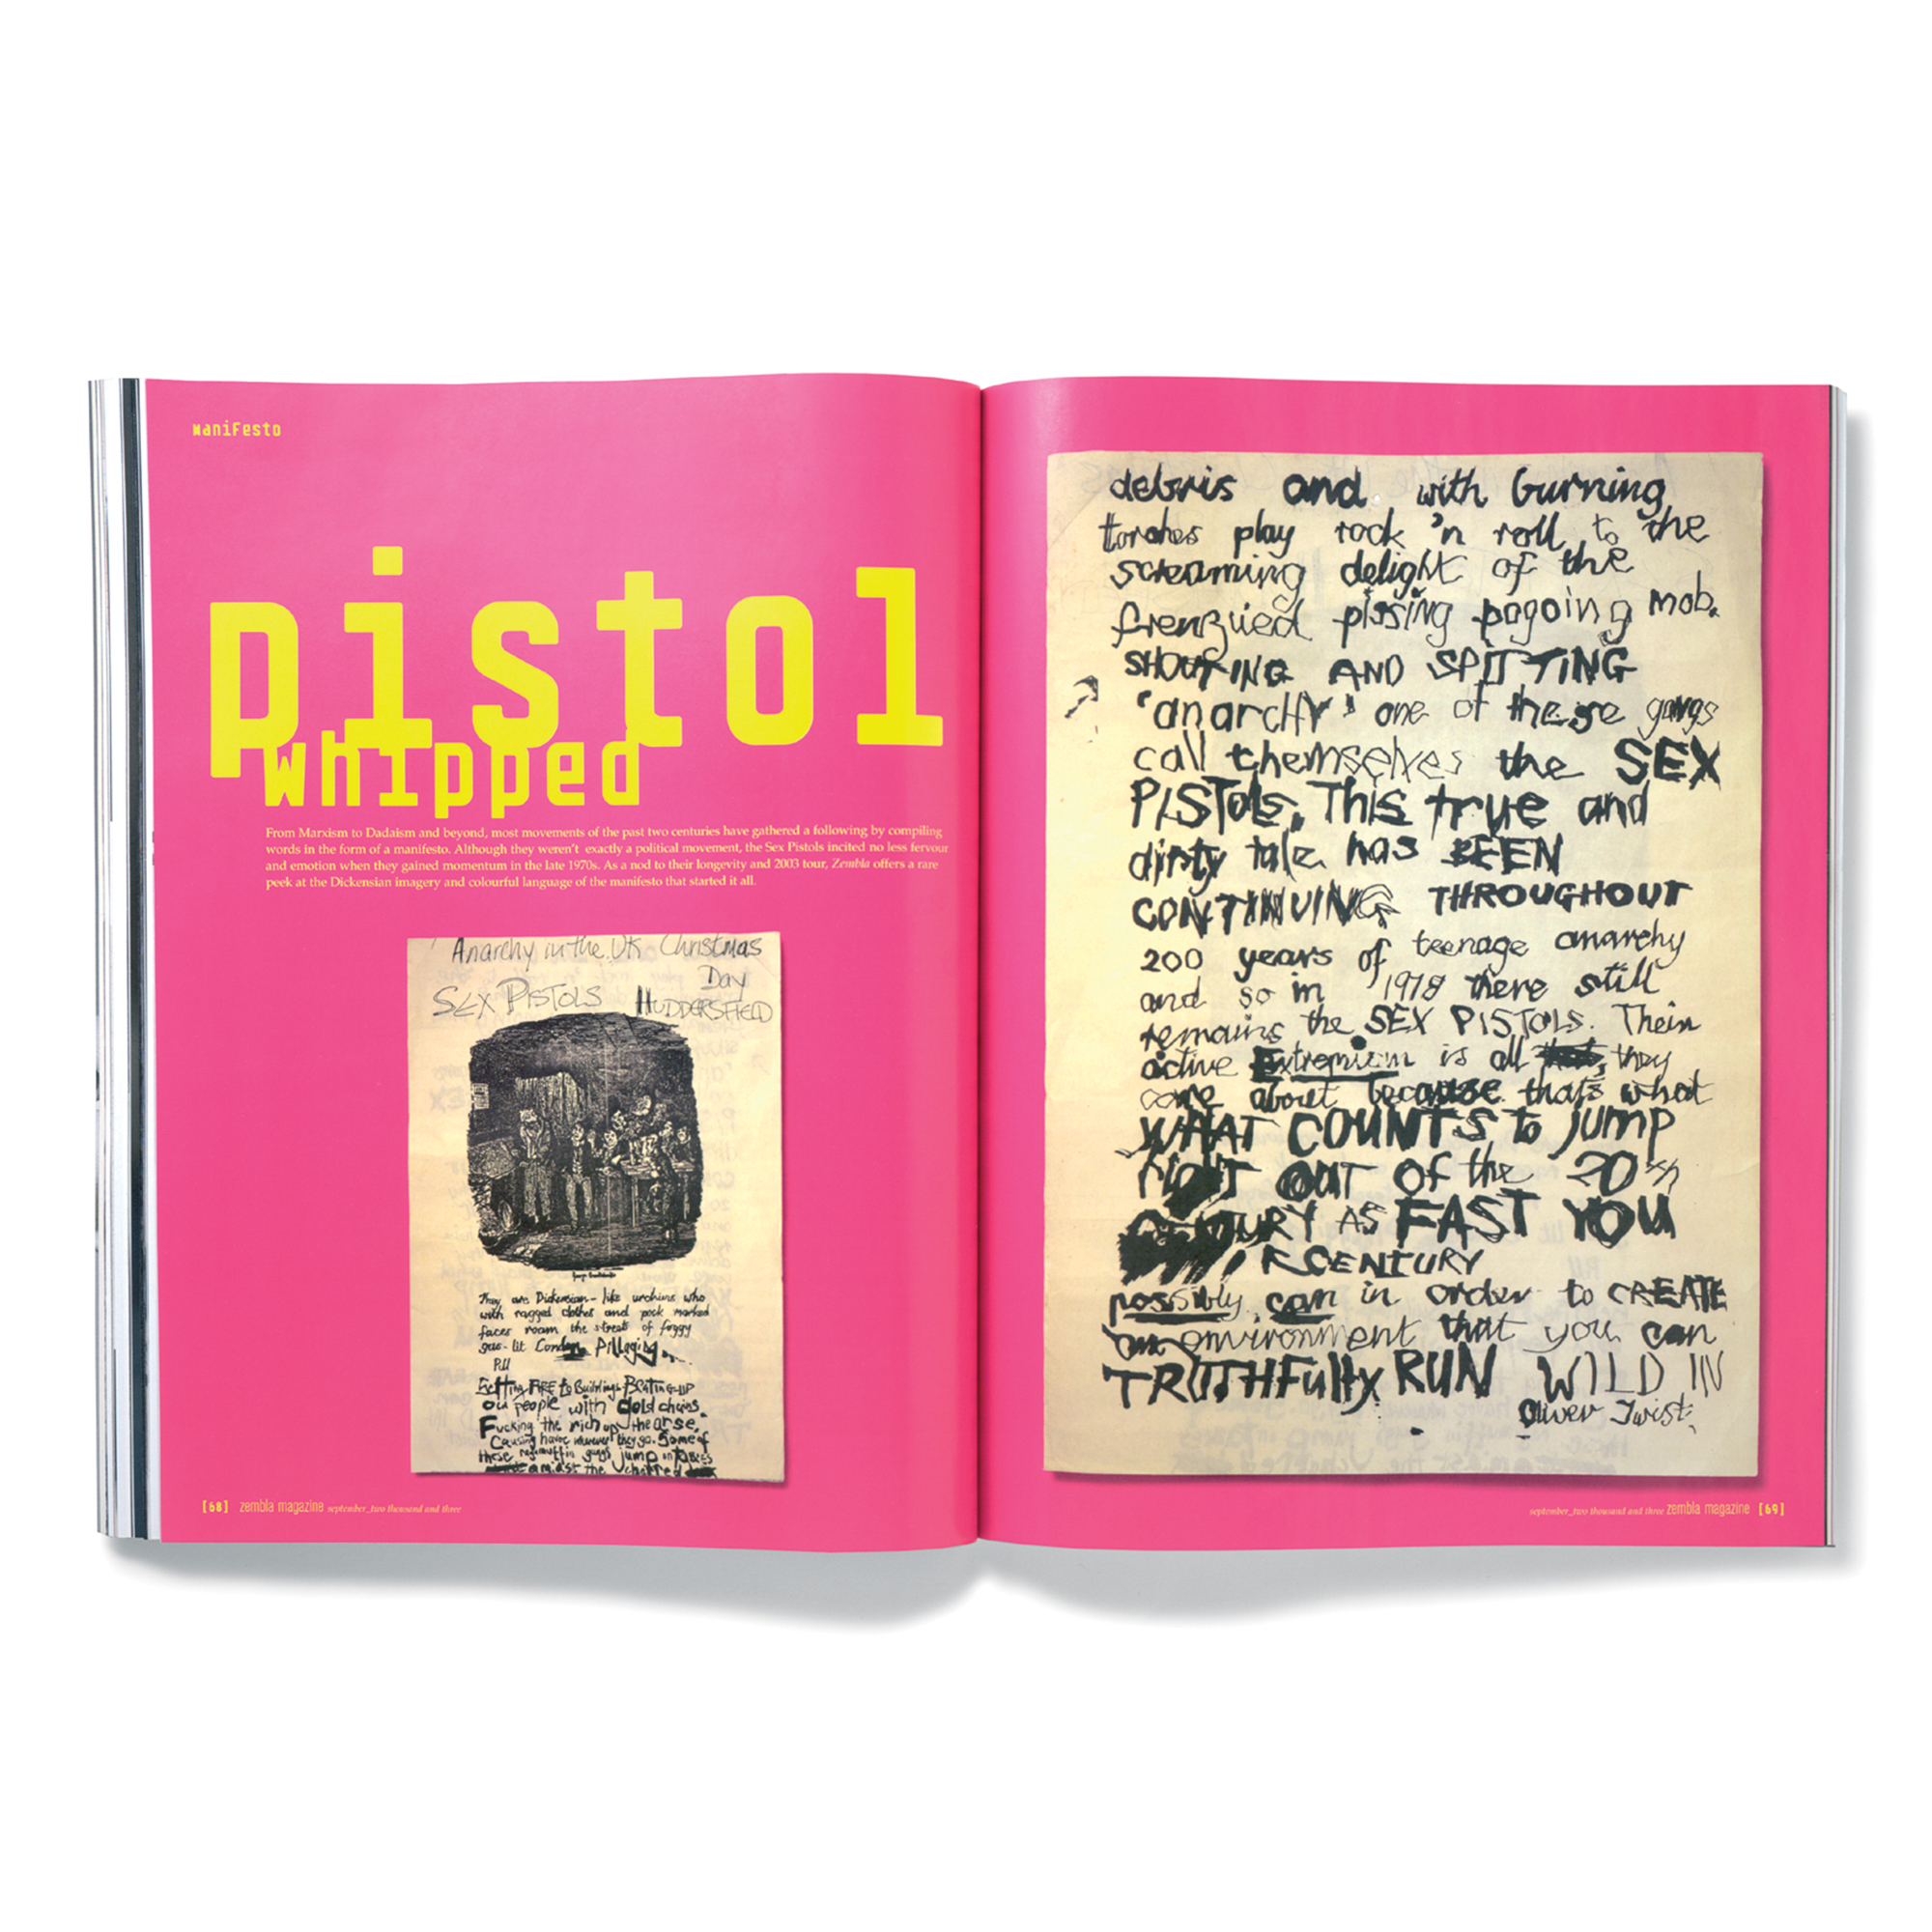 Manifesto
pistol
whipped
From Marxism to Dadaism and beyond, most movements of the past two centuries have gathered a following by compiling
words in the form of a manifesto. Although they weren't exactly a political movement, the Sex Pistols incited no less fervour
and emotion when they gained momentum in the late 1970s. As a nod to their longevity and 2003 tour, Zembla offers a rare
peek at the Dickensian imagery and colourful language of the manifesto that started it all.
Anarchy in the UK Christmas
Day
SEX PISTOLS HUDDERSFIELD
They are Dickensian-like urchins who
with ragged clothes and pock marked
faces roam the streets of foggy
gas-lit London Pillaging
Pill
Setting FIRE to Buildings BEATING UP
old people with gold chains.
Fucking the rich up the arse.
Causing havoc wherever they go. Some of
these ragamuffin gangs jump on tables
amidst the charred
[68] zembla magazine september_two thousand and three
debris and with burning
torches play rock 'n roll to the
screaming delight of the
frenzied pissing pogoing mob.
SHOUTING AND SPITTING
'anarchy' one of these gangs
call themselves the SEX
PISTOLS. This true and
dirty tale has BEEN
CONTINUING THROUGHOUT
200 years of teenage anarchy
and so in 1978 there still
remains the SEX PISTOLS. Their
active Extremism is all they
care about because that's what
WHAT COUNTS to jump
RIGHT OUT OF the 20th
CENTURY AS FAST YOU
CENTURY
possibly can in order to CREATE
an environment that you can
TRUTHFully RUN WILD IN
Oliver Twist
september_two thousand and three zembla magazine [69]